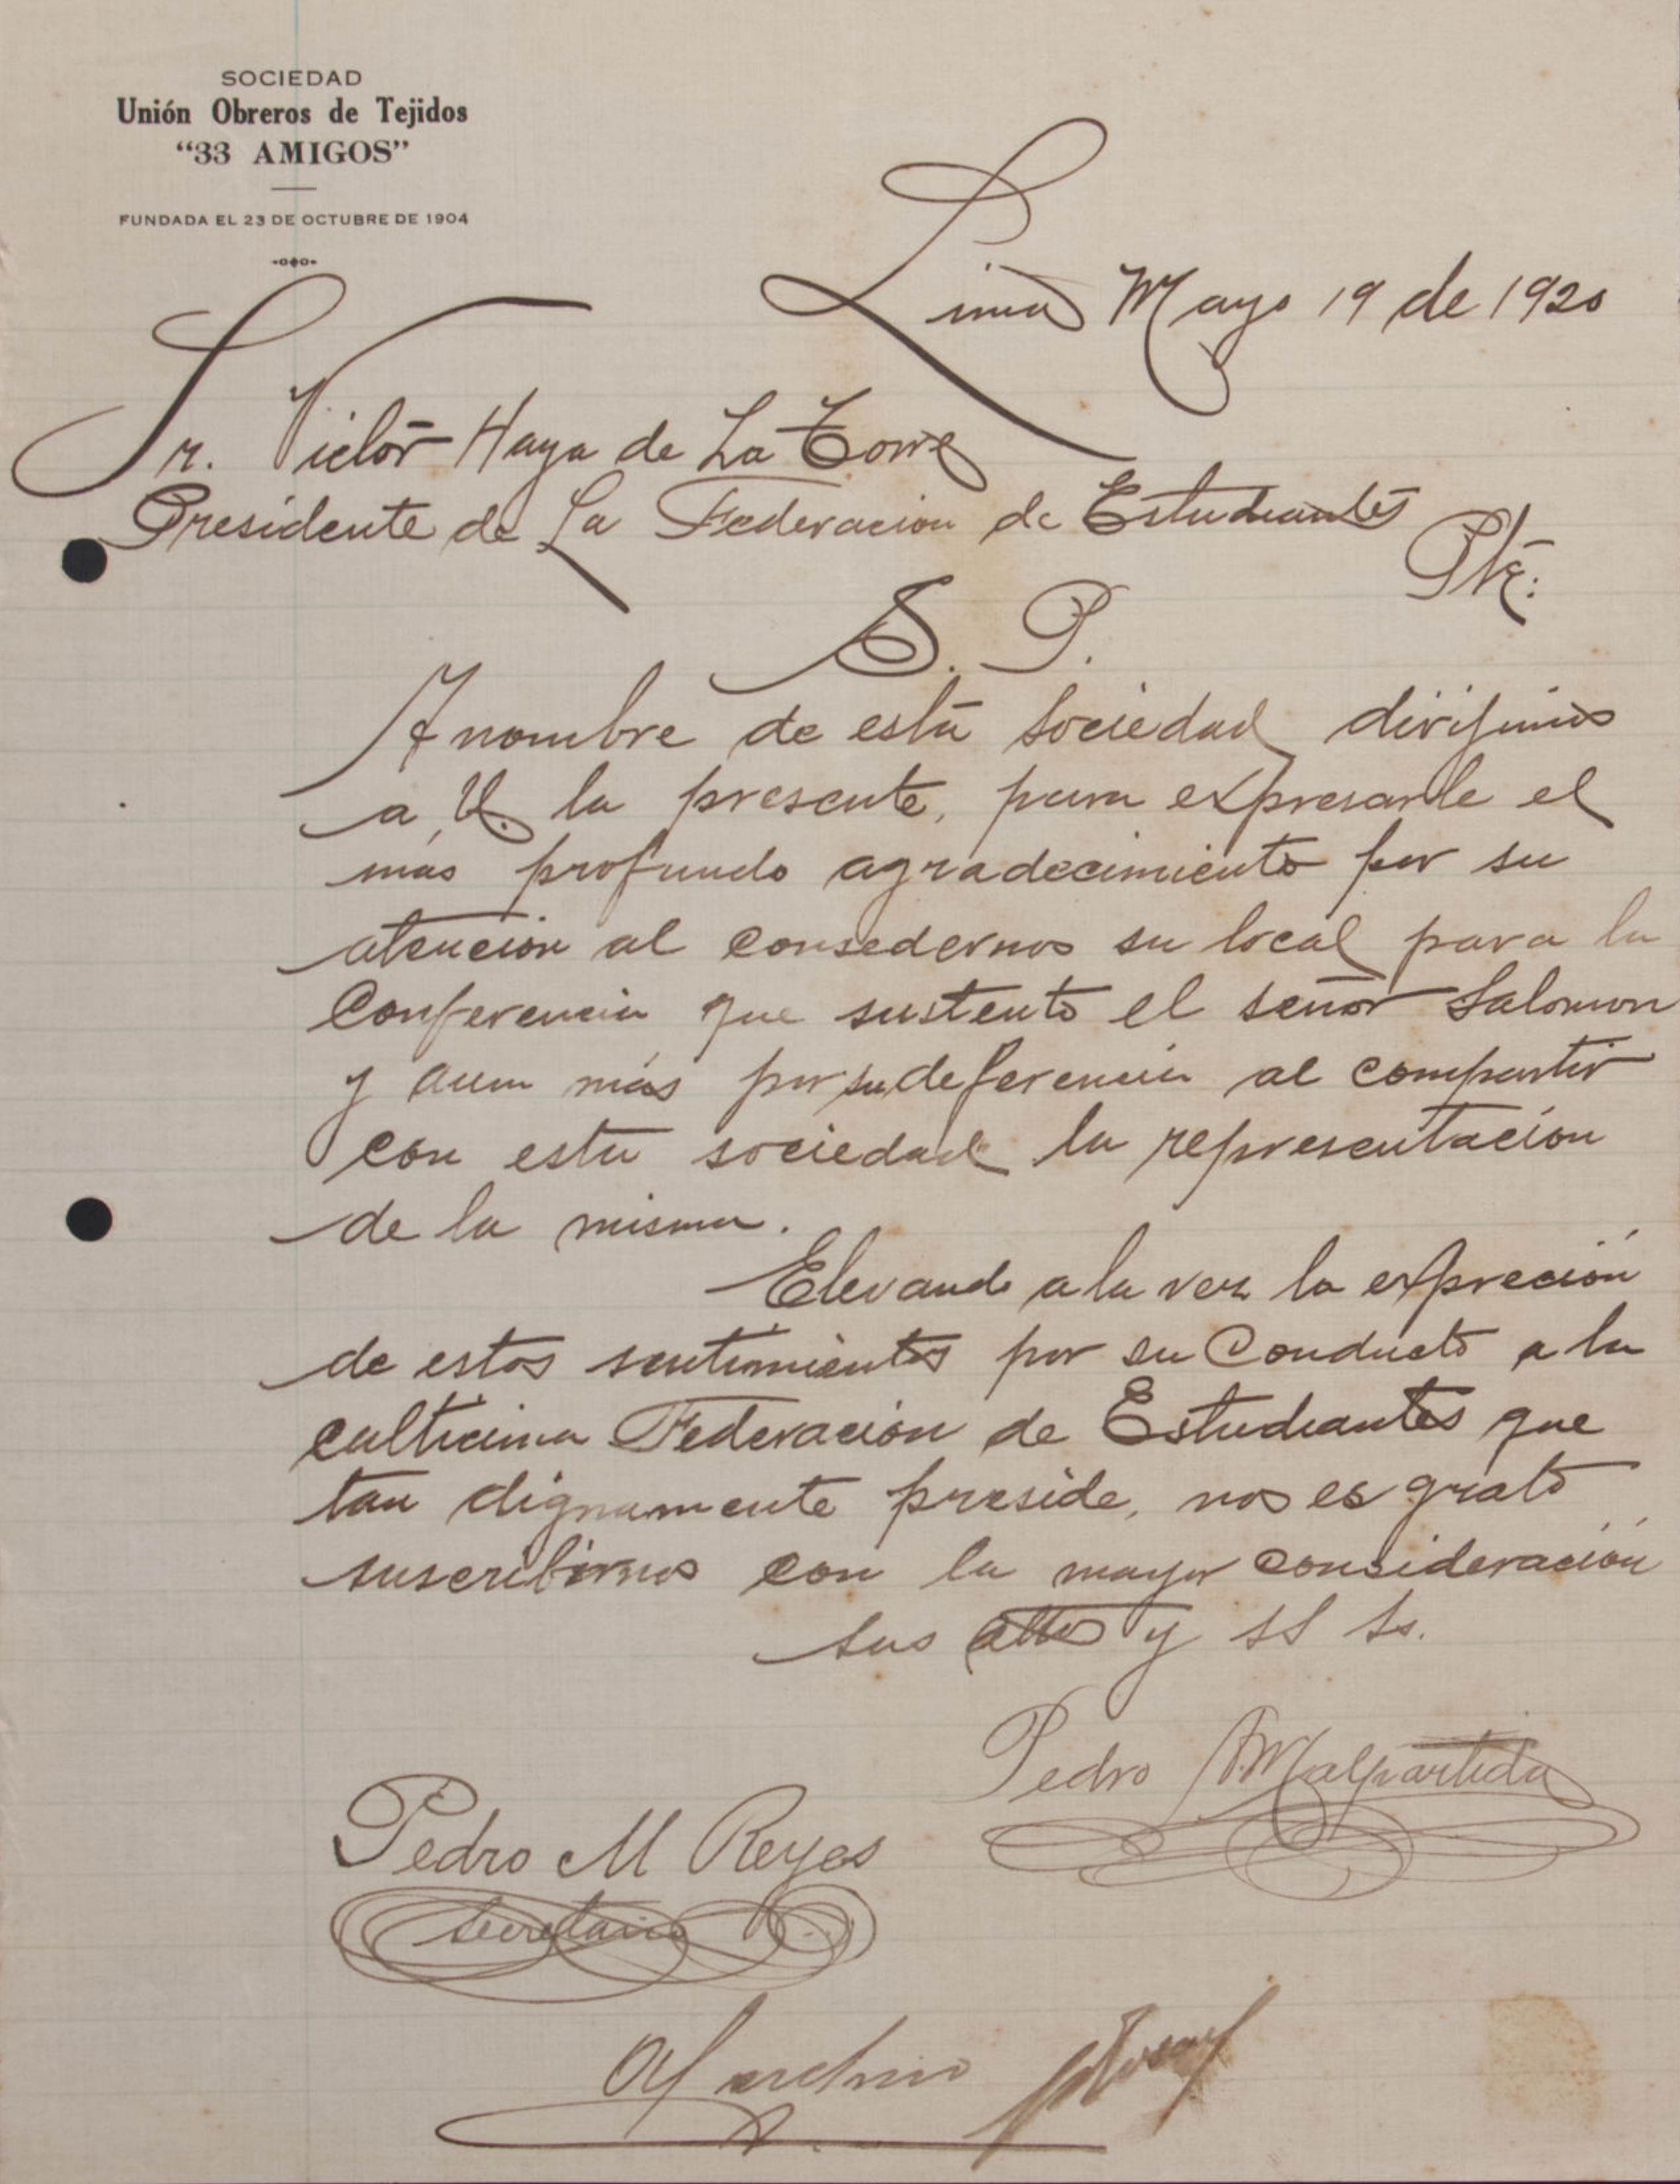 SOCIEDAD
Unión Obreros de Tejidos
"33 AMIGOS"
FUNDADA EL 23 DE OCTUBRE DE 1904
Lima Mayo 19 de 1920
Sr. Victor Haya de La Torre
Presidente de La Federacion de Estudiantes
Pte:
S. P.
A nombre de esta sociedad dirijimos
a U. la presente, para expresarle el
mas profundo agradecimiento por su
atencion al consedernos su local para la
Conferencia que sustento el señor Salomon
y aum más por su deferencia al compartir
con esta sociedad la representación
de la misma.
Elevando a la vez la expreción
de estos sentimientos por su Conducto a la
culticima Federación de Estudiantes que
tan dignamente preside, nos es grato
suscribirnos con la mayor consideración
sus attos y SS Ss.
Pedro A. Malpartida
Pedro M Reyes
Secretario
al archivo